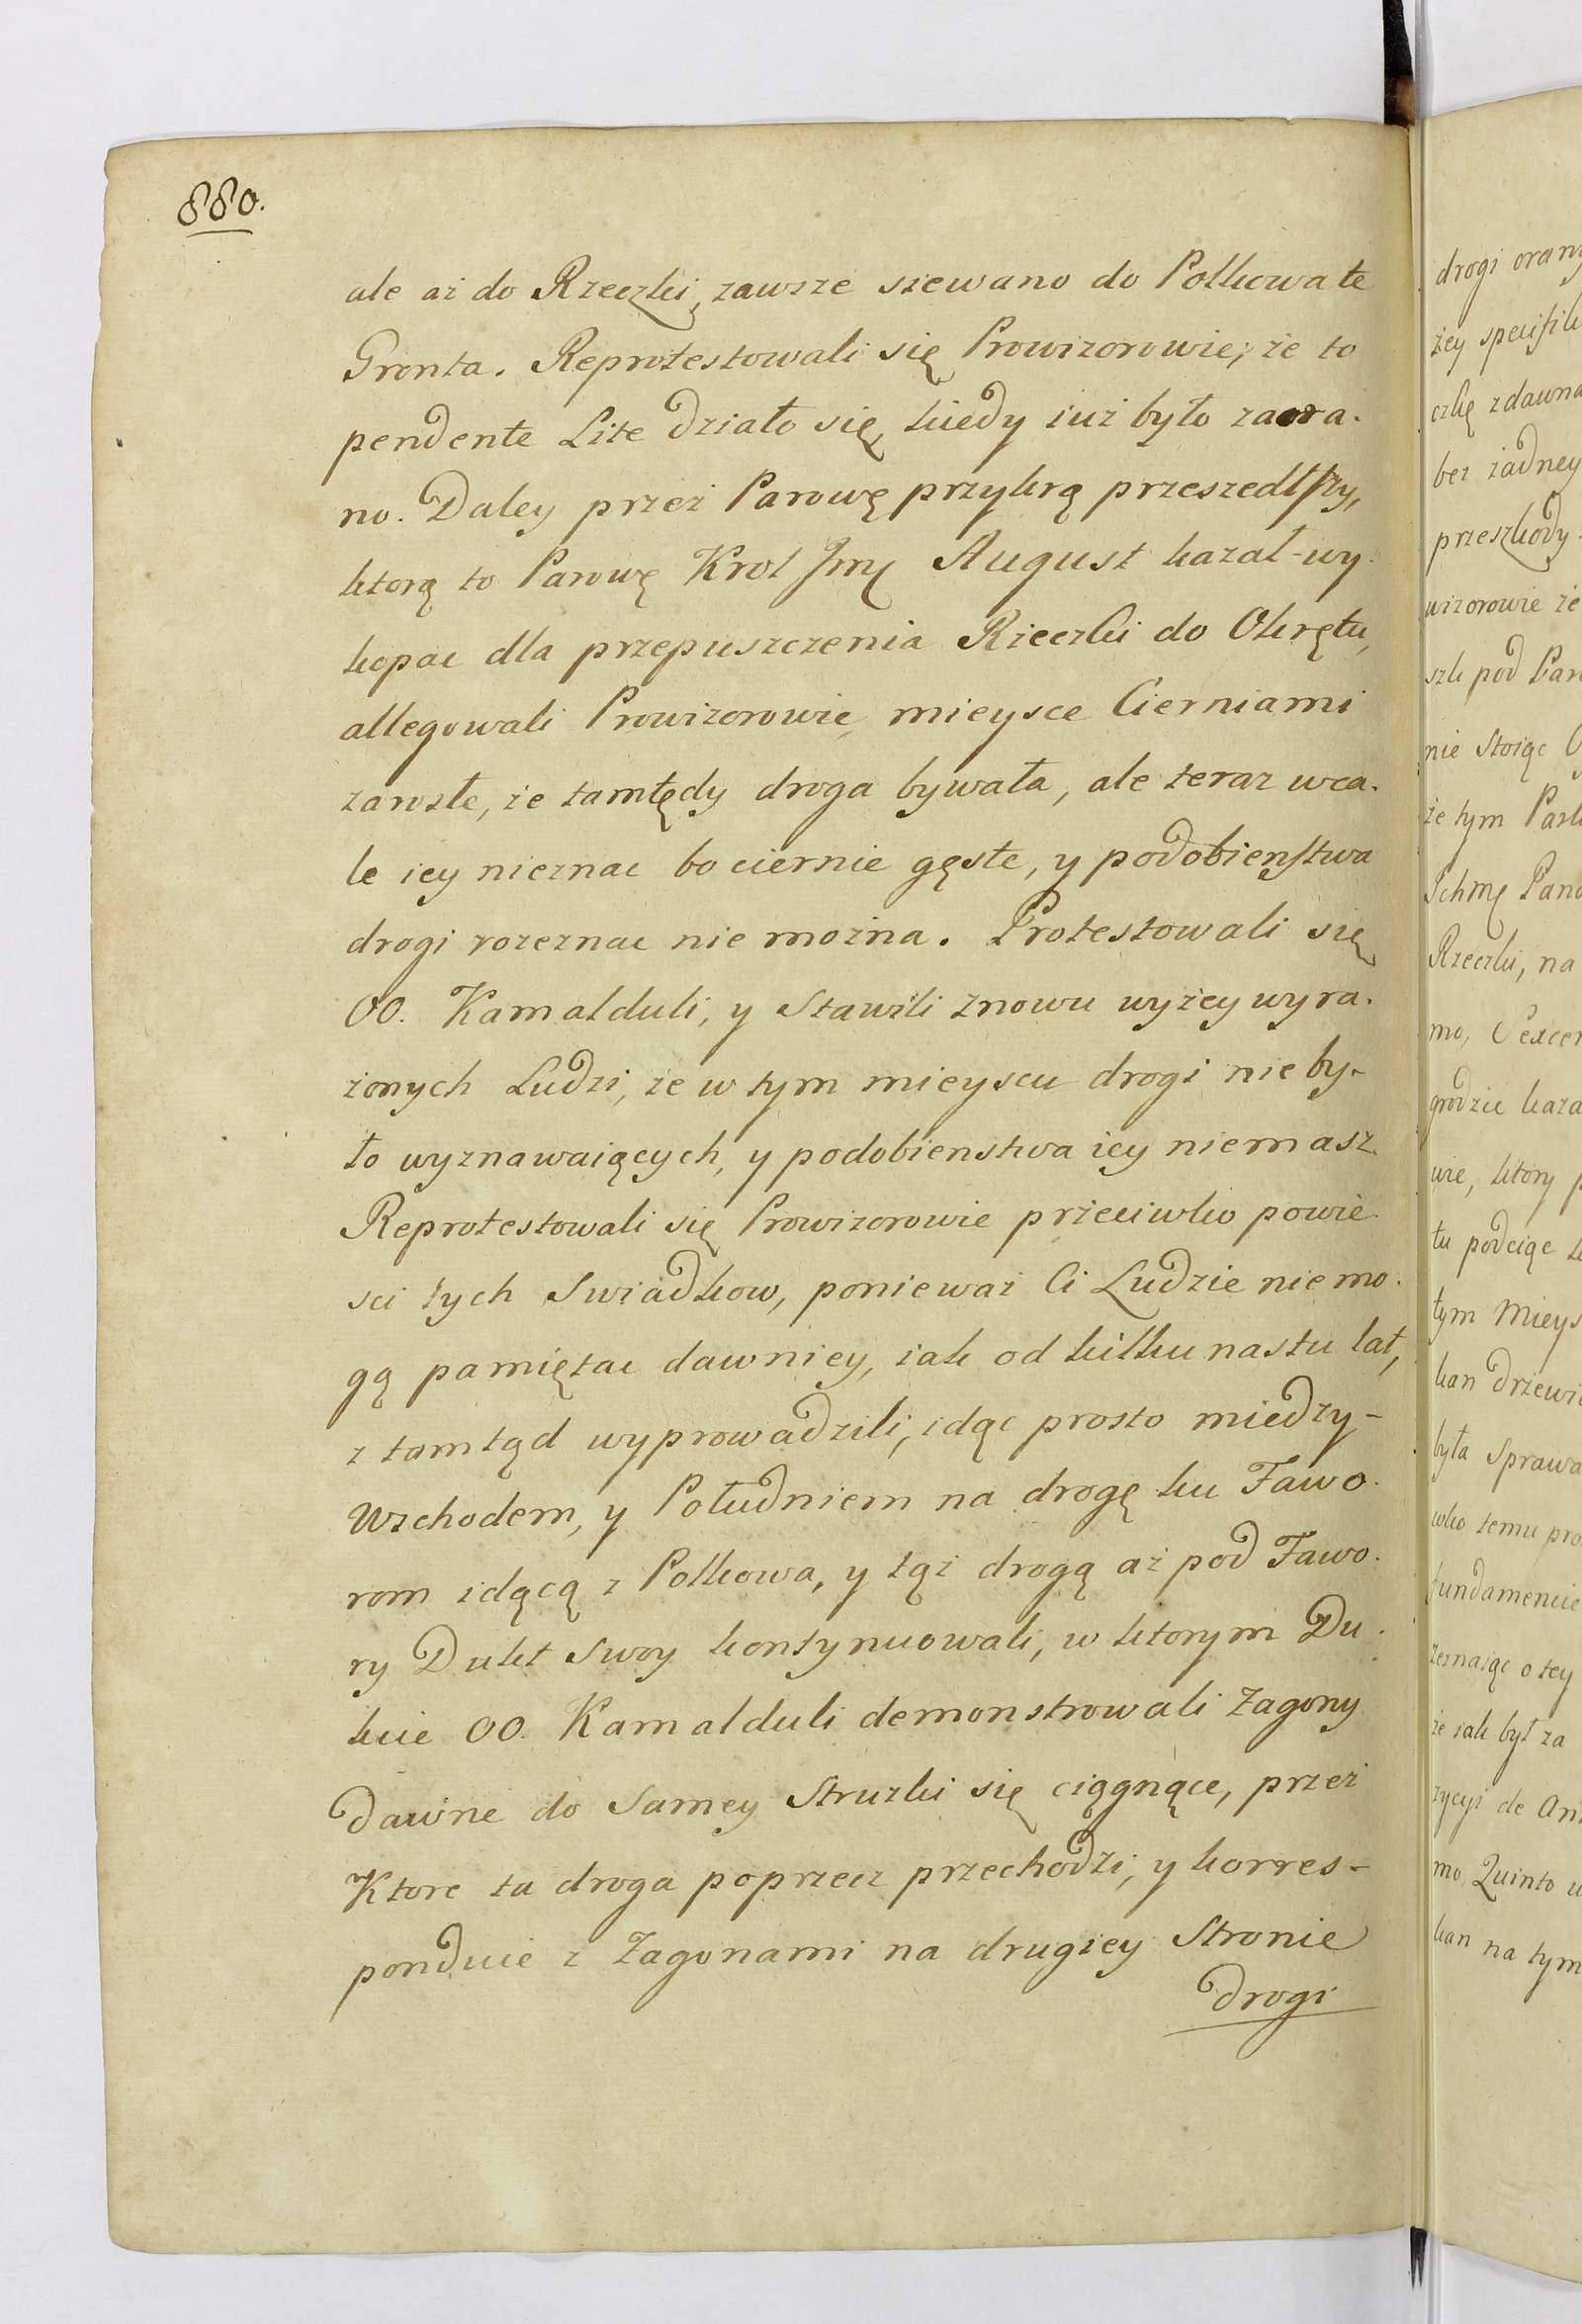 880.
ale aż do Rzeczki, zawsze siewano do Polkowa te
Gronta. Reprotestowali się Prowizorowie, że to
pendente Lite działo się, kiedy iuż było zaora-
no. Daley przez Parowę przykrą przeszedłszy,
ktorą to Parowę Krol Jmę August kazał wy-
kopac dla przepuszczenia Rzeczki do Okrętu,
allegowali Prowizorowie, mieysce Cierniami
zarosłe, że tamtędy droga bywała, ale teraz wca-
le iey nieznac bo ciernie gęste, y podobienstwa
drogi rozeznac nie można. Protestowali się
OO. Kamalduli, y Stawili znowu wyżey wyra-
żonych Ludzi, że w tym mieyscu drogi nie by-
ło wyznawaiących, y podobienstwa iey niemasz.
Reprotestowali się Prowizorowie przeciwko powie-
sci tych Swiadkow, ponieważ Ci Ludzie nie mo-
gą pamiętac dawniey, iak od kilku nastu lat,
z tamtąd wyprowadzili, idąc prosto miedzy-
Wschodem, y Południem na drogę ku Fawo-
rom idącą z Polkowa, y tąż drogą aż pod Fawo-
ry Dukt Swoy kontynuowali, w ktorym Du-
kcie OO. Kamalduli demonstrowali Zagony
dawne do Samey Struzki się ciągnące, przez
Ktore ta droga poprzecz przechodzi, y korres-
ponduie z Zagonami na drugiey Stronie
drogi
drogi orany
żey specifik
czkę zdawna
bez żadney
przeszkody
wizorowie że
szk pod Par
nie Stoiąc
że tym Park
Ichmę Pano
Rzeczki, na
mo, Cexcer
grodzie kaza
wie, ktory p
tu podciąc k
tym Mieys
kan drzewi
była Sprawa
wko temu pro
fundamencie
zeznaiąc o tey
że iak był za
zycyi de An
mo, Quinto u
kan na tym